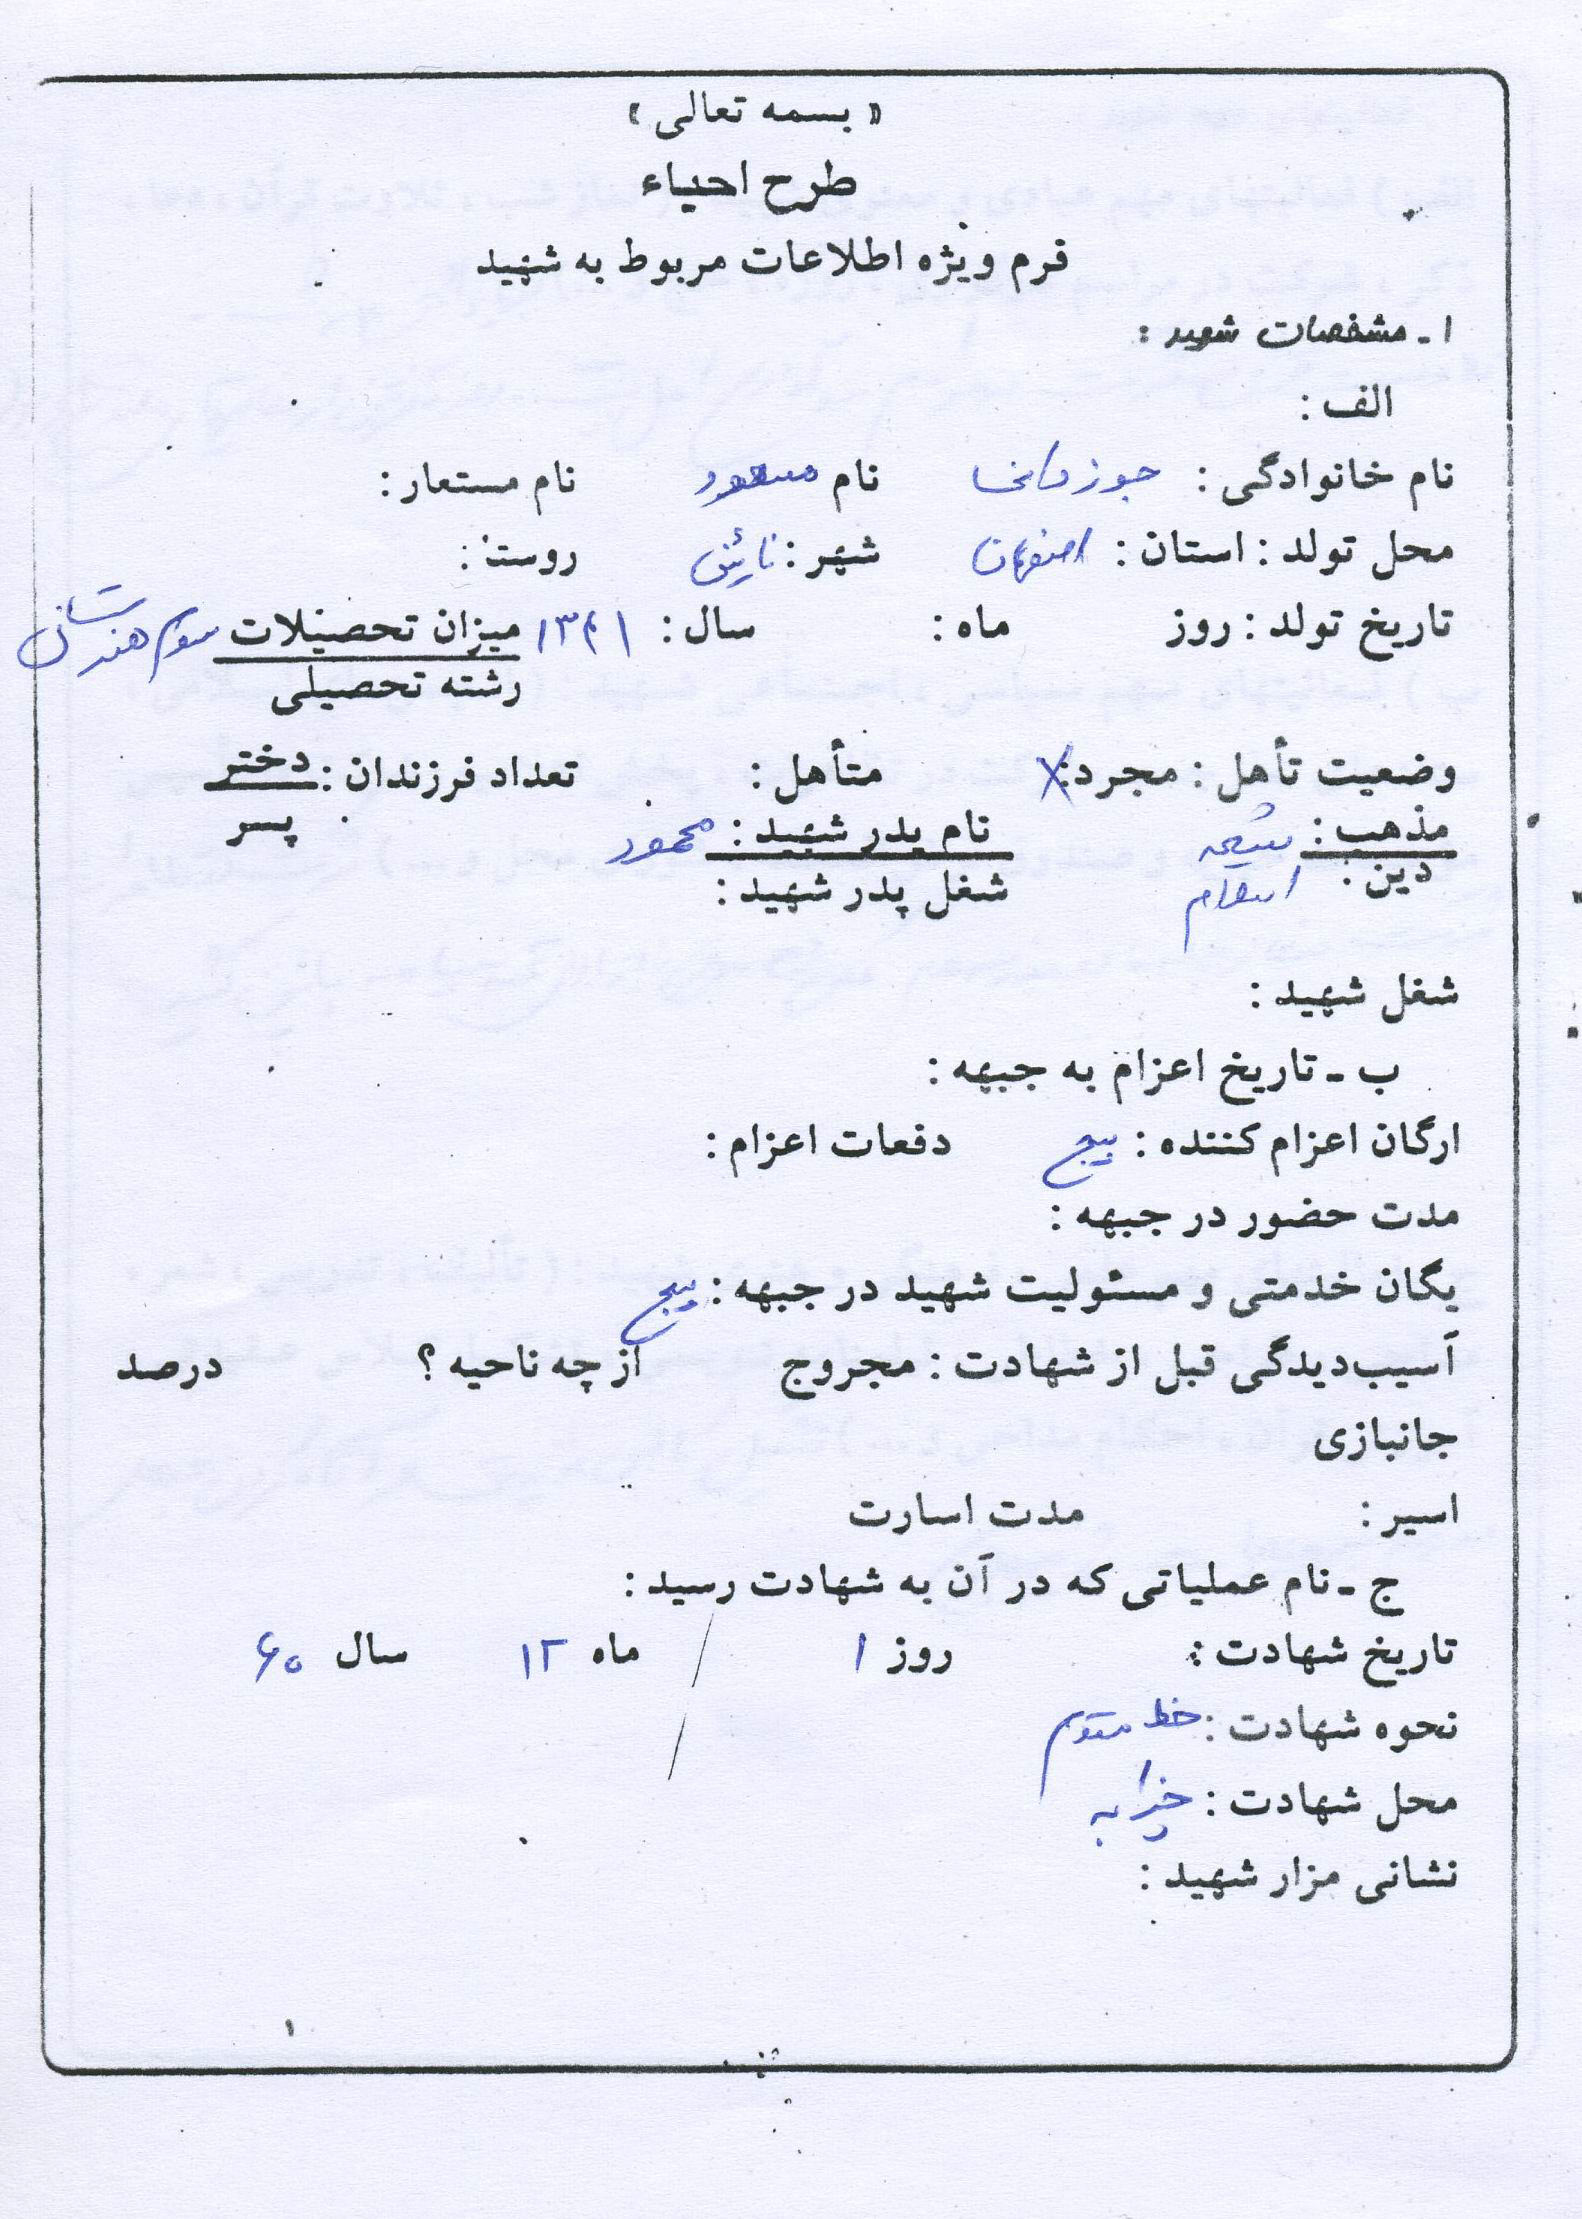 « بسمه تعالی »
طرح احیاء
فرم ویژه اطلاعات مربوط به شهید
۱ - مشخصات شهید :
الف :
نام خانوادگی : جوزدانی نام مسعود نام مستعار :
محل تولد : استان : اصفهان شهر : نائین روستا :
تاریخ تولد : روز ماه : سال : ۱۳۴۱ میزان تحصیلات سوم هنرستان
رشته تحصیلی
وضعیت تأهل : مجرد : X متأهل : تعداد فرزندان : دختر
پسر
مذهب : شیعه نام پدر شهید : محمود
دین : اسلام شغل پدر شهید :
شغل شهید :
ب - تاریخ اعزام به جبهه :
ارگان اعزام کننده : بسیج دفعات اعزام :
مدت حضور در جبهه :
یگان خدمتی و مسئولیت شهید در جبهه : بسیج
آسیب‌دیدگی قبل از شهادت : مجروح از چه ناحیه ؟ درصد
جانبازی
اسیر : مدت اسارت
ج - نام عملیاتی که در آن به شهادت رسید :
تاریخ شهادت : روز ۱ ماه ۱۲ سال ۶۰
نحوه شهادت : خط مقدم
محل شهادت : چزابه
نشانی مزار شهید :
۱